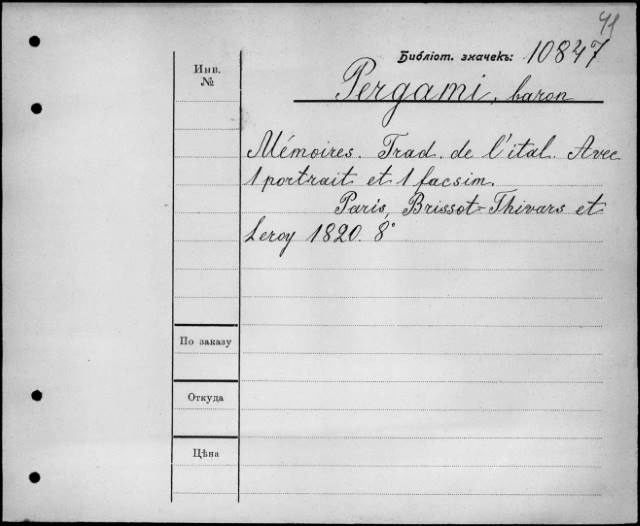 41
Библіот. значекъ: 10847
Инв.
№
Pergami, baron
Mémoires. Trad. de l'ital. Avec
1 portrait et 1 facsim.
Paris, Brissot-Thivars et
Leroy 1820. 8°
По заказу
Откуда
Цѣна